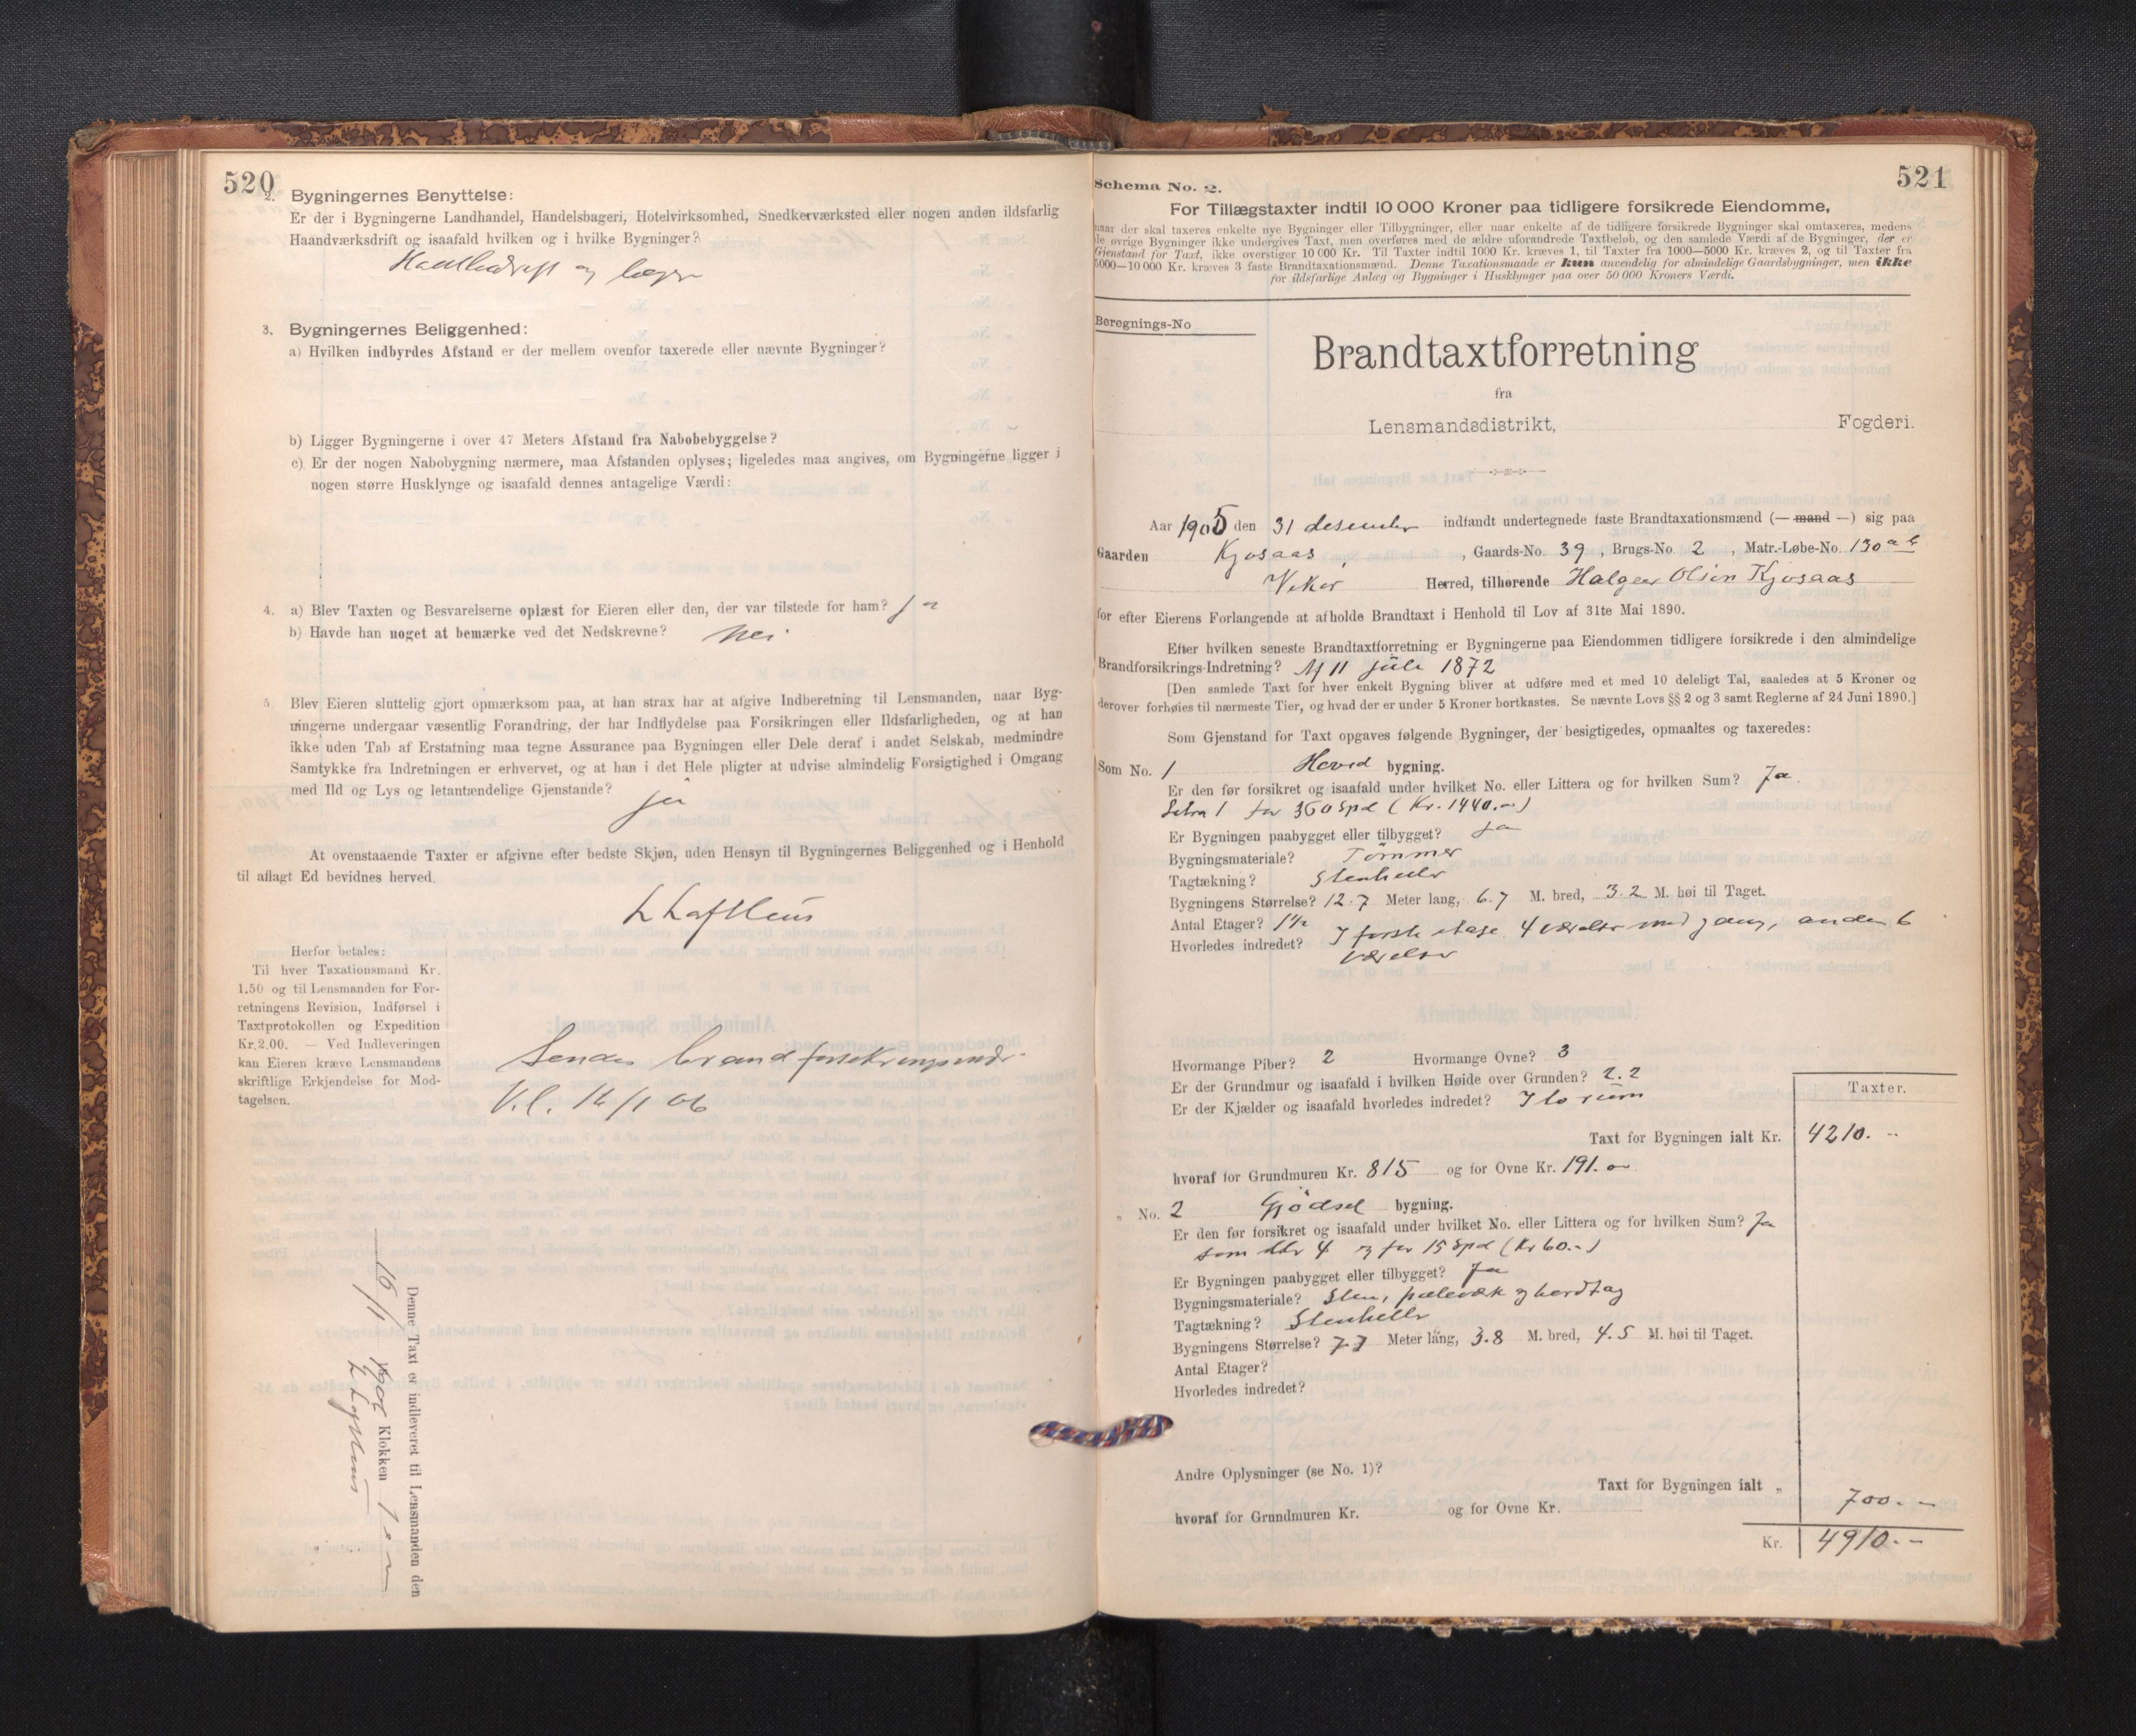 520
2. Bygningernes Benyttelse:
Er der i Bygningerne Landhandel, Handelsbageri, Hotelvirksomhed, Snedkerværksted eller nogen anden ildsfarlig
Haandværksdrift og isaafald hvilken og i hvilke Bygninger?
og
3. Bygningernes Beliggenhed:
a) Hvilken indbyrdes Afstand er der mellem ovenfor taxerede eller nævnte Bygninger?
b) Ligger Bygningerne i over 47 Meters Afstand fra Nabobebyggelse?
c) Er der nogen Nabobygning nærmere, maa Afstanden oplyses; ligeledes maa angives, om Bygningerne ligger i
nogen større Husklynge og isaafald dennes antagelige Værdi:
4. a) Blev Taxten og Besvarelserne oplæst for Eieren eller den, der var tilstede for ham? ja
b) Havde han noget at bemærke ved det Nedskrevne? Nei
5 Blev Eieren sluttelig gjort opmærksom paa, at han strax har at afgive Indberetning til Lensmanden, naar Byg-
ningerne undergaar væsentlig Forandring, der har Indflydelse paa Forsikringen eller Ildsfarligheden, og at han
ikke uden Tab af Erstatning maa tegne Assurance paa Bygningen eller Dele deraf i andet Selskab, medmindre
Samtykke fra Indretningen er erhvervet, og at han i det Hele pligter at udvise almindelig Forsigtighed i Omgang
med Ild og Lys og letantændelige Gjenstande? ja
At ovenstaaende Taxter er afgivne efter bedste Skjøn, uden Hensyn til Bygningernes Beliggenhed og i Henhold
til aflagt Ed bevidnes herved.
L Lofthus
Herfor betales:
Til hver Taxationsmand Kr.
1.50 og til Lensmanden for For-
retningens Revision, Indførsel i
Taxtprotokollen og Expedition
Kr. 2.00. — Ved Indleveringen
kan Eieren kræve Lensmandens
skriftlige Erkjendelse for Mod-
tagelsen.
Sendes brandforsikringsindr.
V.l. 16/1 06
Denne Taxt er indleveret til Lensmanden den
16/1 1906 Klokken 1 em
L Lofthus
521
Schema No. 2.
For Tillægstaxter indtil 10 000 Kroner paa tidligere forsikrede Eiendomme,
naar der skal taxeres enkelte nye Bygninger eller Tilbygninger, eller naar enkelte af de tidligere forsikrede Bygninger skal omtaxeres, medens
de øvrige Bygninger ikke undergives Taxt, men overføres med de ældre uforandrede Taxtbeløb, og den samlede Værdi af de Bygninger, der er
Gjenstand for Taxt, ikke overstiger 10 000 Kr. Til Taxter indtil 1000 Kr. kræves 1, til Taxter fra 1000—5000 Kr. kræves 2, og til Taxter fra
5000—10 000 Kr. kræves 3 faste Brandtaxationsmænd. Denne Taxationsmaade er kun anvendelig for almindelige Gaardsbygninger, men ikke
for ildsfarlige Anlæg og Bygninger i Husklynger paa over 50 000 Kroners Værdi.
Beregnings-No
Brandtaxtforretning
fra
Lensmandsdistrikt, Fogderi.
Aar 1905 den 31 desember indfandt undertegnede faste Brandtaxationsmænd (— mand —) sig paa
Gaarden Kjosaas, Gaards-No. 39, Brugs-No. 2, Matr.-Løbe-No. 130 a b
Vikør Herred, tilhørende Halgeir Olsen Kjosaas
for efter Eierens Forlangende at afholde Brandtaxt i Henhold til Lov af 31te Mai 1890.
Efter hvilken seneste Brandtaxtforretning er Bygningerne paa Eiendommen tidligere forsikrede i den almindelige
Brandforsikrings-Indretning? Af 11 juli 1872
[Den samlede Taxt for hver enkelt Bygning bliver at udføre med et med 10 deleligt Tal, saaledes at 5 Kroner og
derover forhøies til nærmeste Tier, og hvad der er under 5 Kroner bortkastes. Se nævnte Lovs §§ 2 og 3 samt Reglerne af 24 Juni 1890.]
Som Gjenstand for Taxt opgaves følgende Bygninger, der besigtigedes, opmaaltes og taxeredes:
Som No. 1 Hoved bygning.
Er den før forsikret og isaafald under hvilket No. eller Littera og for hvilken Sum? Ja
Litra 1 for 360 Spd (Kr. 1440.-)
Er Bygningen paabygget eller tilbygget? Ja
Bygningsmateriale? Tømmer
Tagtækning? Stenheller
Bygningens Størrelse? 12.7 Meter lang, 6.7 M. bred, 3.2 M. høi til Taget.
Antal Etager? 1½
Hvorledes indredet? I første etage 4 værelser med gang, anden 6
værelser
Hvormange Piber? 2 Hvormange Ovne? 3
Er der Grundmur og isaafald i hvilken Høide over Grunden? 2.2
Er der Kjælder og isaafald hvorledes indredet? I to rum
Taxter.
Taxt for Bygningen ialt Kr. 4210. -
hvoraf for Grundmuren Kr. 815 og for Ovne Kr. 191. -
" No. 2 Gjødsel bygning.
Er den før forsikret og isaafald under hvilket No. eller Littera og for hvilken Sum? Ja
som litr 4 og for 15 Spd (Kr 60.-)
Er Bygningen paabygget eller tilbygget? Ja
Bygningsmateriale? Sten, pæleværk og bordtag
Tagtækning? Stenheller
Bygningens Størrelse? 7.7 Meter lang, 3.8 M. bred, 4.5 M. høi til Taget.
Antal Etager?
Hvorledes indredet?
Andre Oplysninger (se No. 1)?
Taxt for Bygningen ialt " 700. -
hvoraf for Grundmuren Kr. og for Ovne Kr.
Kr. 4910. -